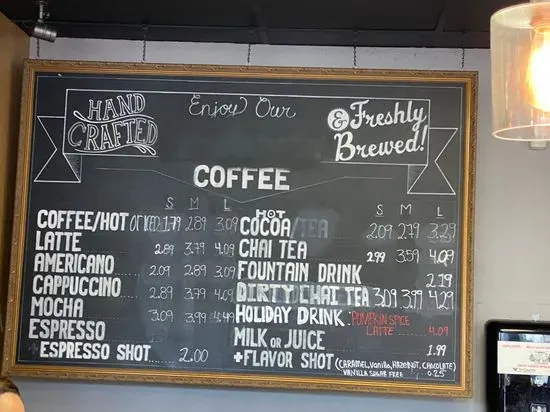 HAND CRAFTED
Enjoy Our
& Freshly Brewed!
COFFEE
S M L
COFFEE/HOT or ICED 1.79 2.89 3.09
LATTE 2.89 3.79 4.09
AMERICANO 2.09 2.89 3.09
CAPPUCCINO 2.89 3.79 4.09
MOCHA 3.09 3.99 4.49
ESPRESSO
+ ESPRESSO SHOT 2.00
S M L
HOT
COCOA/TEA 2.09 2.79 3.29
CHAI TEA 2.99 3.59 4.09
FOUNTAIN DRINK 2.19
DIRTY CHAI TEA 3.09 3.99 4.29
HOLIDAY DRINK: PUMPKIN SPICE
LATTE 4.09
MILK OR JUICE 1.99
+FLAVOR SHOT (CARAMEL, Vanilla, HAZELNUT, CHOCOLATE)
VANILLA SUGAR FREE 0.25